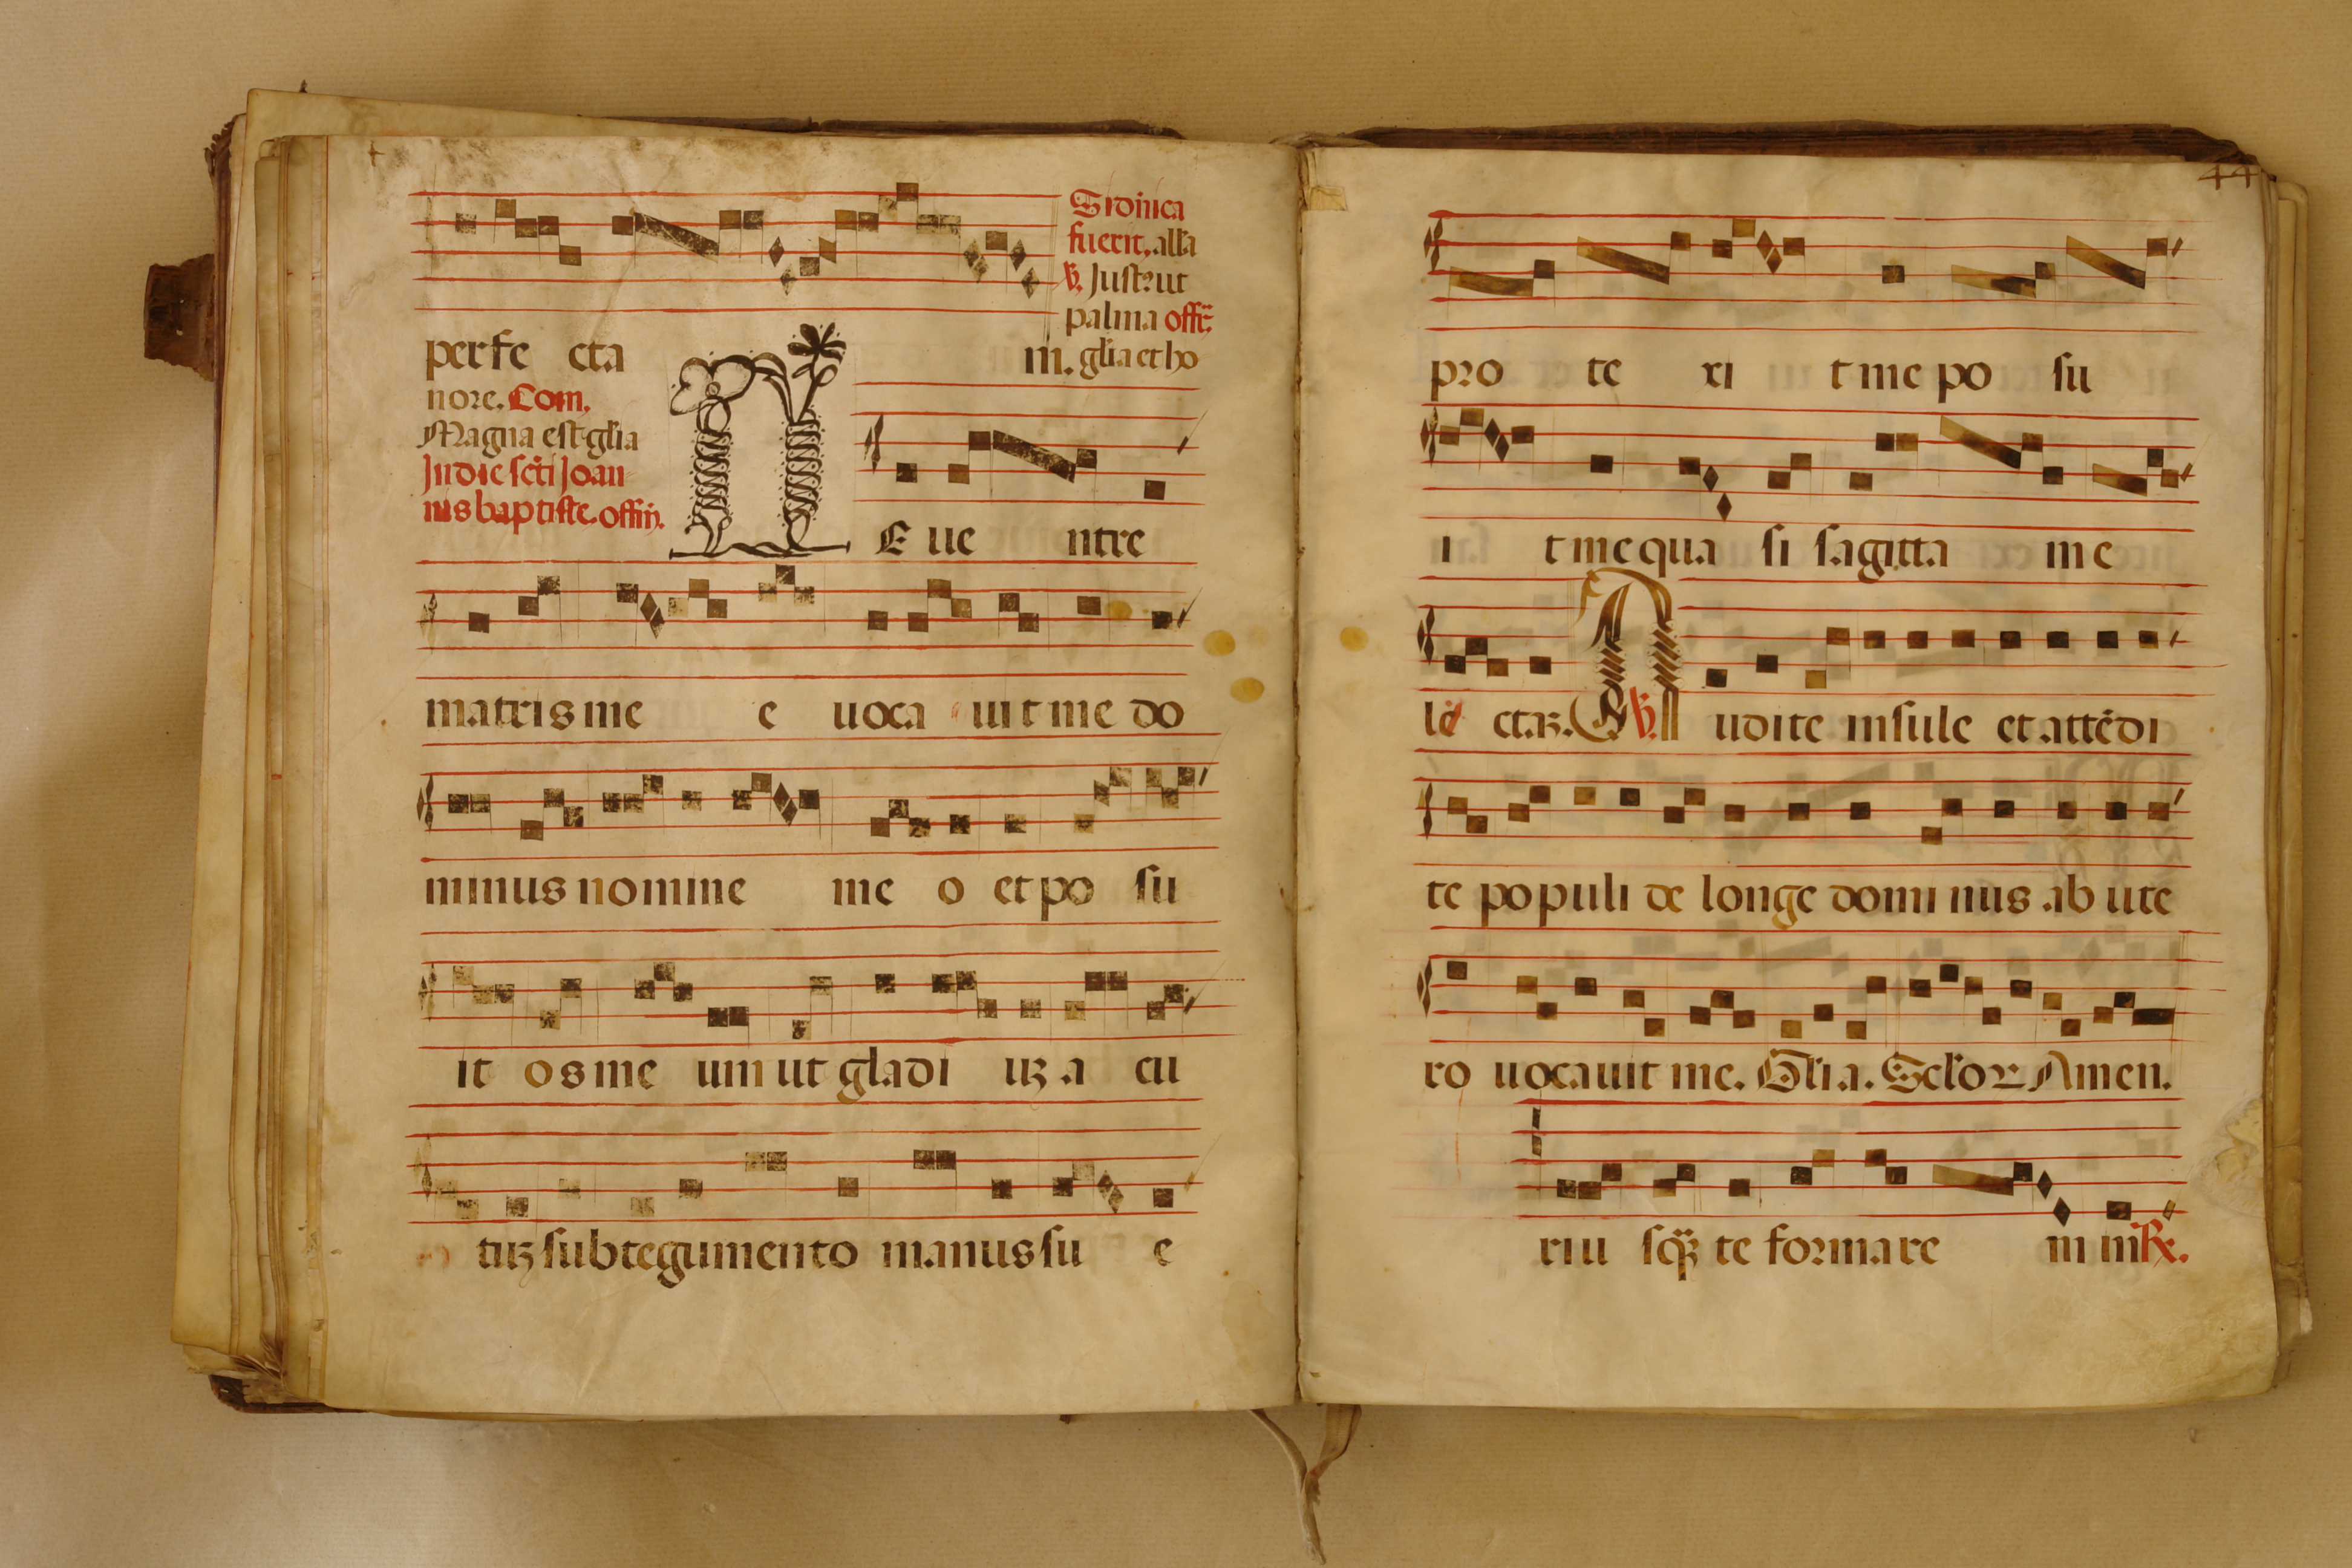 Si dñica
fuerit, alla
℣. Justꝰ ut
palma offr̃.
perfe cta
m. glia et ho
nore. Com.
Magna est glia
In die scti Joan
nis baptiste. offm̃.
E ue ntre
matris me e uoca uit me do
minus nomine me o et po su
it os me um ut gladi uꝫ a cu
tuꝫ sub tegumento manus su e
44
pro te xi t me po su
i t me qua si sagitta me
le ctaꝫ. ℣. A udite insule et attēdi
te populi de longe domi nus ab ute
ro uocauit me. Glia. Sclor Amen.
riu sqꝫ te formare in in ℟.